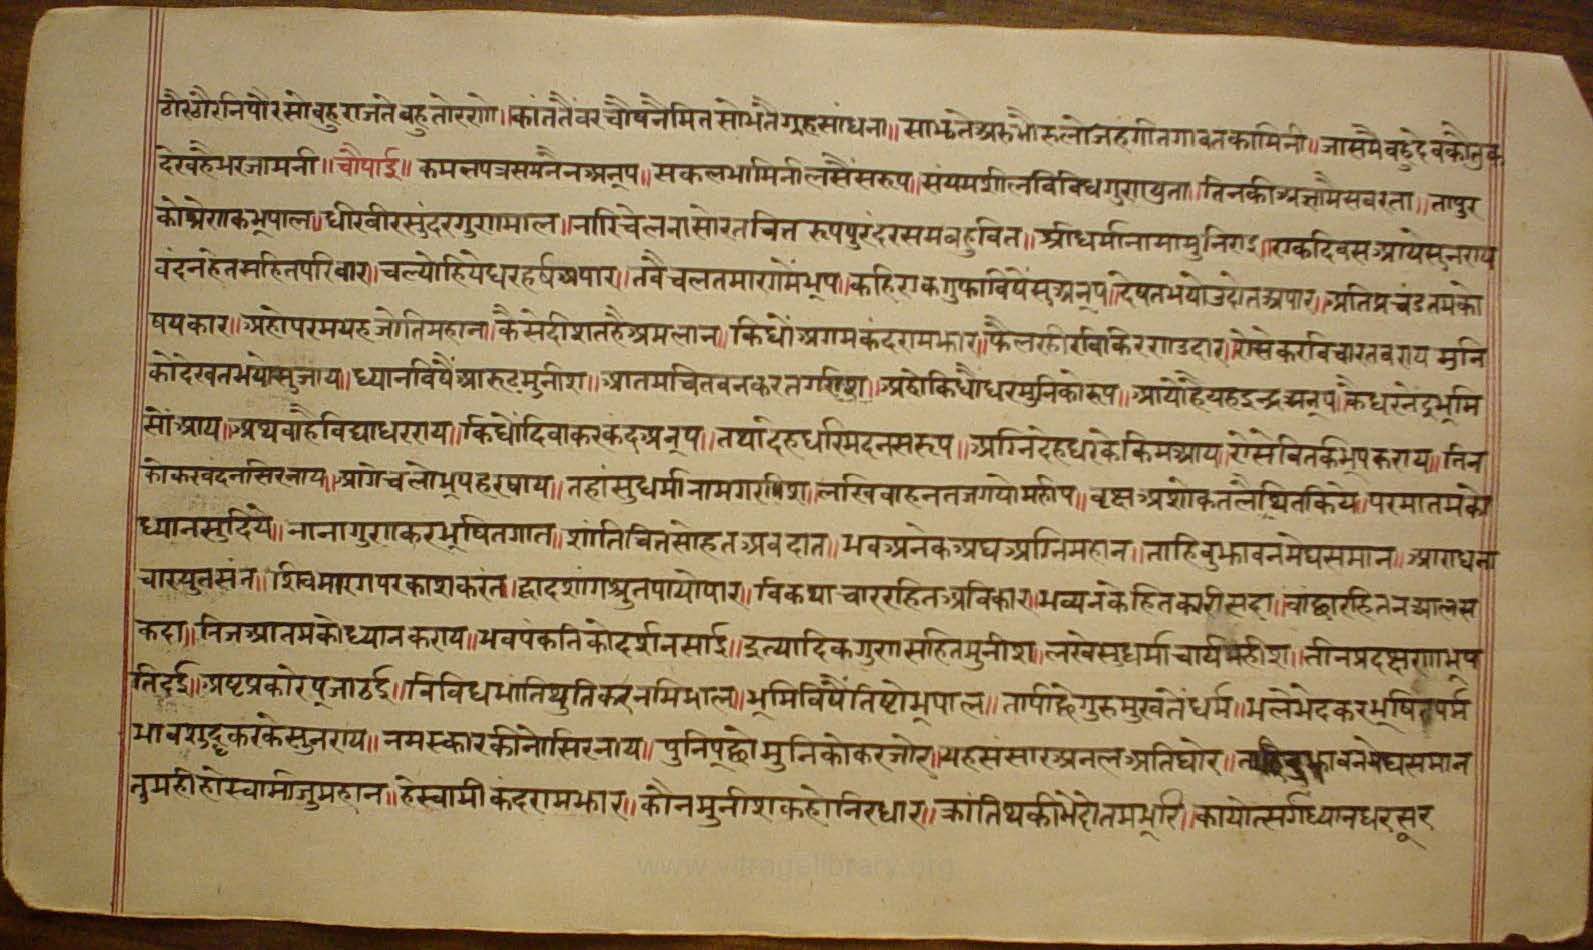 ठौरठौरनिपौरसोबहुराजतेबहुतोररणे॥कांततैंवरचौषनैमितसोभतैगृहसांधना॥साभतेअरुभौरुलोजहंगीतगावतकामिनी॥जासमैबहुदेवकौतुक
देखहैभरजामनी॥चौपाई॥कमलपत्रसमनैनअनूप॥सकलभामिनीलसैंसरूप॥संयमशीलविविधगुणयुता॥तिनकीअज्ञामैसबरता॥तापुर
कोश्रेणकभूपाल॥धीरवीरसुंदरगुणमाल॥नारिचेलनासोरतचित॥रूपपुरंदरसमबहुवित॥श्रीधर्मानामामुनिराइ॥एकदिवसआयेसुनराय
वंदनहेतसहितपरिवार॥चल्योहियेधरहर्षअपार॥तबैचलतमारगमेंभूप॥कहिएकगुफाविषेंसुअनूप॥देषतभयोउदोतअपार॥अतिप्रचंडतमको
षयकार॥अहोपरमयहजोतिमहान॥कैसेदीशतहैअमलान॥किधोंअगमकंदरामझार॥फैलरहीरविकिरणउदार॥ऐसेकरविचारतबराय॥मुनि
कोदेखतभयोसुजाय॥ध्यानविषैंआरूढमुनीश॥आतमचितवनकरतगरीश॥अहोकिधौंधरमुनिकोरूप॥आयोहैयहइन्द्रअनूप॥कैधरनेंद्रभूमि
सोंआय॥अथवाहैविद्याधरराय॥किधोंदिवाकरकंदअनूप॥तथादेहधरिमदनसरूप॥अग्निदेहधरकेकिमआय॥ऐसेवितर्कभूपकराय॥तिन
कोकरवंदनसिरनाय॥आगेचलोभूपहरषाय॥तहांसुधर्मानामगरीश॥लखिवाहनतजगयोमहीप॥वृक्षअशोकतलैथितकिये॥परमातमको
ध्यानसुदिये॥नानागुणकरभूषितगात॥शांतिचितसोहतअवदात॥भवअनेकअघअग्निमहान॥ताहिबुझावनमेघसमान॥आराधना
चारयुतसंत॥शिवमारगपरकाशकरंत॥द्वादशांगश्रुतपायोपार॥विकथाचाररहितअविकार॥भव्यनकेहितकारीसदा॥वांछारहितनआलस
कदा॥निजआतमकोध्यानकराय॥भवपंकतिकोदर्शनसाई॥इत्यादिकगुणसहितमुनीश॥लखेसुधर्माचार्यमहीश॥तीनप्रदक्षणाभूप
तिदई॥अष्टप्रकारपूजाठई॥विविधभांतिथुतिकरनमिभाल॥भूमिविषैंतिष्टोभूपाल॥तापीछेगुरुमुखतेंधर्म॥भलेभेदकरभूषितपर्म
भावशुद्धकरकेसुनराय॥नमस्कारकीनोसिरनाय॥पुनिपूछोमुनिकोकरजोर॥यहसंसारअनलअतिघोर॥ताहिबुझावनमेघसमान
तुमहीहोस्वामीजुमहान॥हेस्वामीकंदरामझार॥कौनमुनीशकहोनिरधार॥क्रांतिथकीभेदोतमभूरि॥कायोत्सर्गध्यानधरसूर
www.vitragelibrary.org